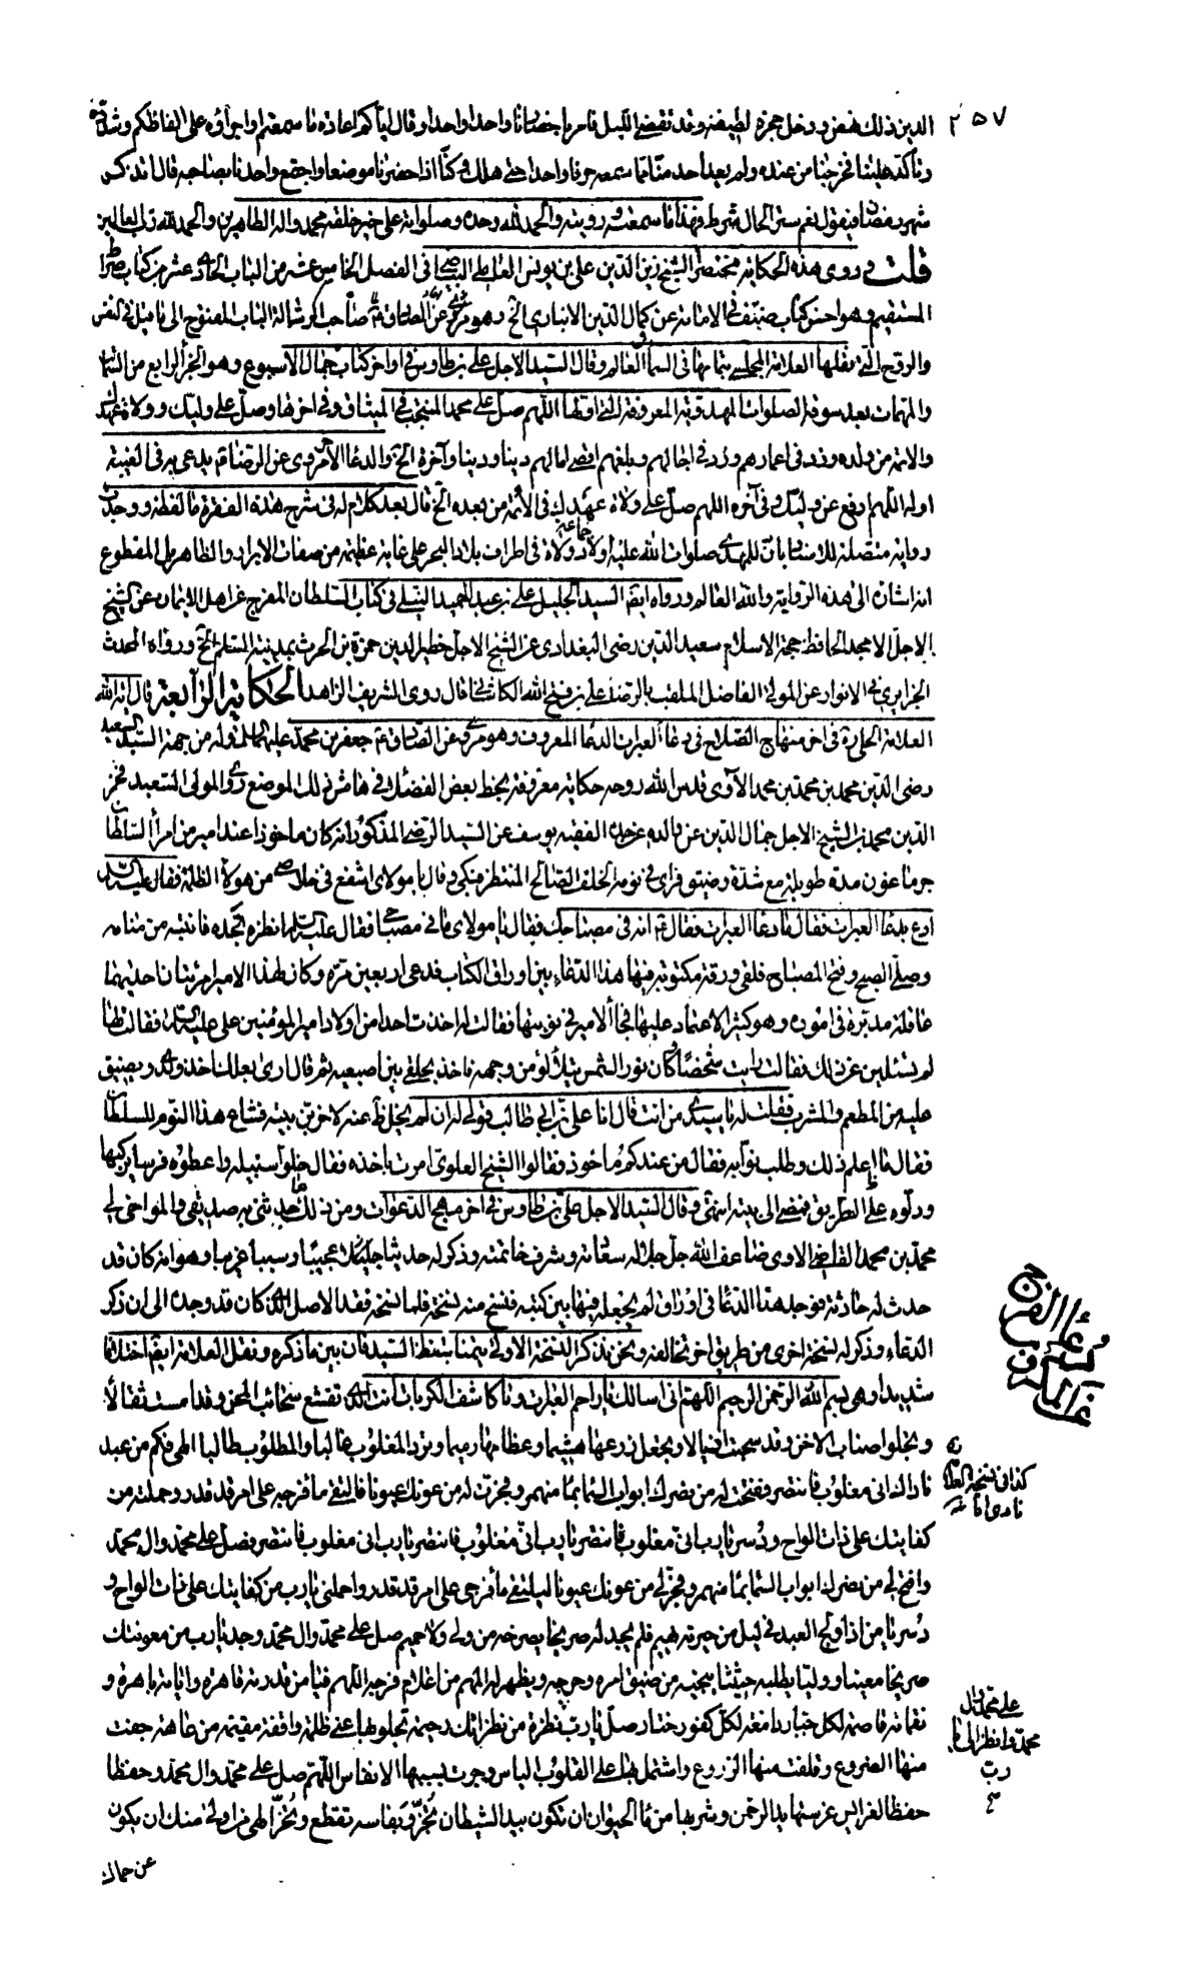 ٢٥٧
الدين ذلك نهض ودخل حجرة لطيفة وقد تقضى الليل فامر باحضارنا واحدا واحدا وقال اياكم اعادة ما سمعتم او اجراؤه على الفاظكم وشدد
وتأكد علينا فخرجنا من عنده ولم يعد احد منا مما سمعه حرفا واحدا حتى هلك وكنا اذا حضرنا موضعا واجتمع واحدنا بصاحبه قال اتذكر
شهر رمضان فيقول نعم ستر الحال شرط فهذا ما سمعته ورويته والحمد لله وحده وصلواته على خير خلقه محمد واله الطاهرين والحمد لله رب العالمين
قلت وروى هذه الحكاية مختصرا الشيخ زين الدين علي بن يونس العاملي البياضي في الفصل الخامس عشر من الباب الحادي عشر من كتاب الصراط
المستقيم وهو احسن كتاب صنف في الامامة عن كمال الدين الانباري الخ وهو صاحب الرسالة الباب المفتوح الى ما قيل في النفس
والروح التي نقلها العلامة المجلسي بتمامها في السماء والعالم وقال السيد الاجل علي بن طاوس في اواخر كتاب جمال الاسبوع وهو الجزء الرابع من التتمات
والمهمات بعد سوقه الصلوات المهدوية المعروفة التي اولها اللهم صل على محمد المنتجب في الميثاق وفي اخرها وصل على وليك وولاة عهدك
والائمة من ولده وزد في اعمارهم وزد في اجالهم وبلغهم اقصى امالهم دينا ودنيا وآخرة الخ والدعاء الآخر مروي عن الرضا يدعى به في الغيبة
اوله اللهم ادفع عن وليك وفي آخره اللهم صل على ولاة عهدك في الائمة من بعده الخ قال بعد كلام له في شرح هذه الفقرة ما لفظه ووجدت
رواية متصلة الاسناد بان للمهدي صلوات الله عليه اولاد جماعة ولاة في اطراف بلاد البحر على غاية عظيمة من صفات الابرار والظاهر بل المقطوع
انه اشارة الى هذه الرواية والله العالم ورواه ايضا السيد الجليل علي بن عبد الحميد النيلي في كتاب السلطان المفرج عن اهل الايمان عن الشيخ
الاجل الامجد الحافظ حجة الاسلام سعيد الدين رضي البغدادي عن الشيخ الاجل خطير الدين حمزة بن الحرث بمدينة السلم الخ ورواه المحدث
الجزايري في الانوار عن المولى الفاضل الملقب بالرضا علي بن فتح الله الكاشاني قال روى الشريف الزاهد الحكاية الرابعة قال آية الله
العلامة الحلي في اخر منهاج الصلاح في دعاء العبرات الدعاء المعروف وهو مروي عن الصادق جعفر بن محمد عليهما السلام وله من جهة السيد السعيد
رضي الدين محمد بن محمد بن محمد الآوي قدس الله روحه حكاية معروفة بخط بعض الفضلاء في هامش ذلك الموضع روى المولى السعيد فخر
الدين محمد بن الشيخ الاجل جمال الدين عن والده عن جده الفقيه يوسف عن السيد الرضي المذكور انه كان ماخوذا عند امير من امراء السلطان
جرماغون مدة طويلة مع شدة وضيق فراى في نومه الخلف الصالح المنتظر فبكى وقال يا مولاى اشفع في خلاصي من هولاء الظلمة فقال عليه السلام
ادع بدعاء العبرات فقال ما دعاء العبرات فقال انه في مصباحك فقال يا مولاى ما في مصباحي فقال عليه السلام انظره تجده فانتبه من منامه
وصلى الصبح وفتح المصباح فلقى ورقة مكتوبة فيها هذا الدعاء بين اوراق الكتاب فدعى اربعين مرة وكان لهذا الامير امرئتان احديهما
عاقلة مدبرة في اموره وهو كثير الاعتماد عليها فجاء الامير في نوبتها فقالت له اخذت احدا من اولاد امير المؤمنين علي عليه السلام فقال لها
لم تسئلين عن ذلك فقالت رايت شخصا وكان نور الشمس يتلألؤ من وجهه فاخذ بحلقي بين اصبعيه ثم قال ارى بعلك اخذ ولدى ويضيق
عليه من المطعم والمشرب فقلت له يا سيدي من انت قال انا علي بن ابي طالب قولي له ان لم يخل عنه لاخربن بيته فشاع هذا النوم للسلطان
فقال ما اعلم ذلك وطلب نوابه فقال من عندكم ماخوذ فقالوا الشيخ العلوي امرت باخذه فقال خلوا سبيله واعطوه فرسا يركبها
ودلوه على الطريق فمضى الى بيته انتهى وقال السيد الاجل علي بن طاوس في اخر مهج الدعوات ومن ذلك ما حدثني به صديقي والمواخي لي
محمد بن محمد القاضي الاوي ضاعف الله جل جلاله سعادته وشرف خاتمته وذكر له حديثا عجيبا وسببا غريبا وهو انه كان قد
حدث له حادثة فوجد هذا الدعاء في اوراق لم يجعله فيها بين كتبه فنسخ منه نسخة فلما نسخه فقد الاصل الذي كان قد وجده الى ان ذكر
الدعاء وذكر له نسخة اخرى من طريق اخر تخالفه ونحن نذكر النسخة الاولى تيمنا بلفظ السيد فان بين ما ذكره ونقل العلامة ايضا اختلافا
شديدا وهي بسم الله الرحمن الرحيم اللهم اني اسالك يا راحم العبرات ويا كاشف الكربات انت الذي تقشع سحائب المحن وقد امست ثقالا
وتجلو ضباب الاحن وقد سحبت اذيالا وتجعل زرعها هشيما وعظامها رميما وترد المغلوب غالبا والمطلوب طالبا الهي فكم من عبد
ناداك اني مغلوب فانتصر ففتحت له من نصرك ابواب السماء بماء منهمر وفجرت له من عونك عيونا فالتقى ماء فرجه على امر قد قدر وحملته من
كفايتك على ذات الواح ودسر يا رب اني مغلوب فانتصر يا رب اني مغلوب فانتصر يا رب اني مغلوب فانتصر فصل على محمد وال محمد
وافتح لي من نصرك ابواب السماء بماء منهمر وفجر لي من عونك عيونا ليلتقى ماء فرجي على امر قد قدر واحملني يا رب من كفايتك على ذات الواح و
دسر يا من اذا ولج العبد في ليل من حيرته يهيم فلم يجد له صريخا يصرخه من ولي ولا حميم صل على محمد وال محمد وجد يا رب من معونتك
صريخا معينا ووليا يطلبه حثيثا ينجيه من ضيق امره وحرجه ويظهر له المهم من اعلام فرجه اللهم فيا من قدرته قاهرة واياته باهرة و
نقماته قاصمة لكل جبار دامغة لكل كفور ختار صل يا رب نظرة من نظراتك رحيمة تجلو بها عني ظلمة واقفة مقيمة من عاهة جفت
منها الضروع وقلفت منها الزروع واشتمل بها على القلوب الياس وجرت بسببها الانفاس اللهم صل على محمد وال محمد وحفظا
حفظا لغرايس غرستها يد الرحمن وشربها من ماء الحيوان ان تكون بيد الشيطان تجز وبفاسه تقطع وتحز الهي من اولى منك ان يكون
عن حماك
دعاء الفرج
على محمد وال
محمد وانظر الي يا
رب